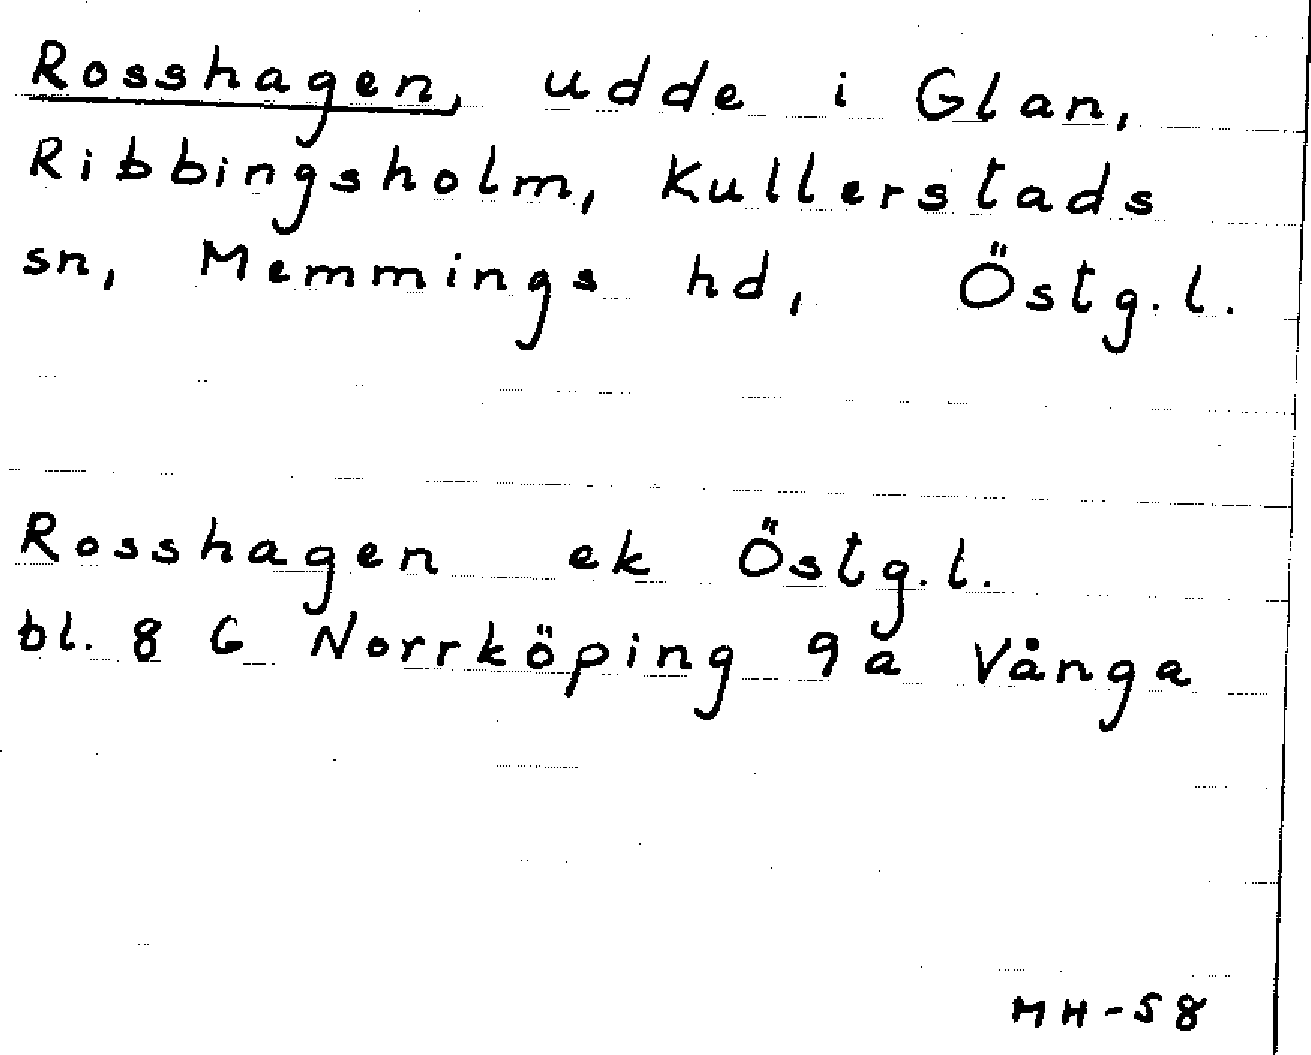 Rosshagen, udde i Glan,
Ribbingsholm, Kullerstads
sn, Memmings hd, Östg.l.
Rosshagen ek Östg.l.
bl. 8 G Norrköping 9a Vånga
MH-58